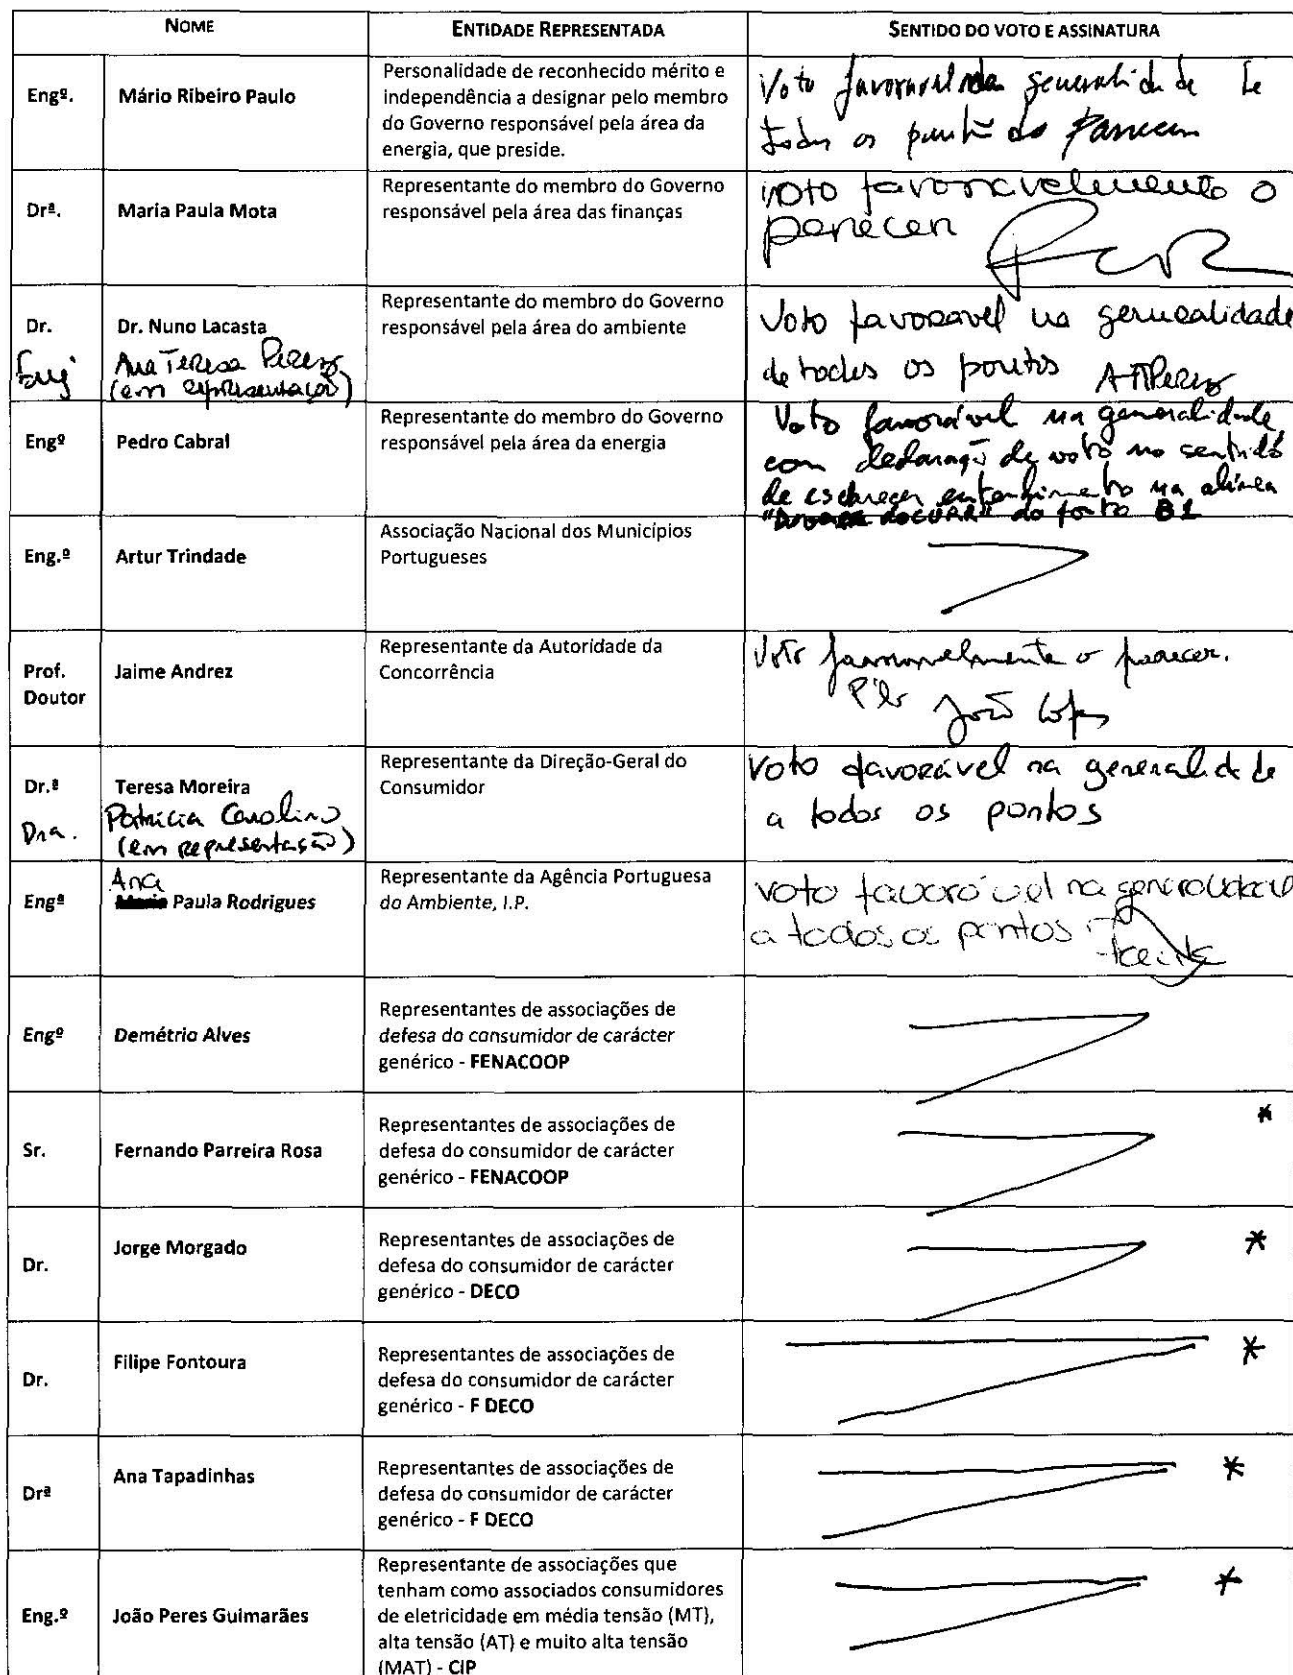 NOME ENTIDADE REPRESENTADA SENTIDO DO VOTO E ASSINATURA
Engº. Mário Ribeiro Paulo
Personalidade de reconhecido mérito e
independência a designar pelo membro
do Governo responsável pela área da
energia, que preside.
Voto favoravel na generalidade de
todos os pontos do Parecer
Drª. Maria Paula Mota
Representante do membro do Governo
responsável pela área das finanças
voto favoravelmente o
parecer
Dr. Dr. Nuno Lacasta
Eng Ana Teresa Perez
(em representação)
Representante do membro do Governo
responsável pela área do ambiente
Voto favoravel na generalidade
de todos os pontos ATPerez
Engº Pedro Cabral
Representante do membro do Governo
responsável pela área da energia
Voto favorável na generalidade,
com declaração de voto no sentido
de esclarecer entendimento na alínea
do ponto B1
Eng.º Artur Trindade
Associação Nacional dos Municípios
Portugueses
Prof.
Doutor
Jaime Andrez
Representante da Autoridade da
Concorrência
Voto favoravelmente o parecer.
João Lopes
Dr.ª Teresa Moreira
Dra. Patrícia Carolino
(em representação)
Representante da Direção-Geral do
Consumidor
Voto favorável na generalidade
a todos os pontos
Ana
Engª Maria Paula Rodrigues
Representante da Agência Portuguesa
do Ambiente, I.P.
voto favorável na generalidade
a todos os pontos
Engº Demétrio Alves
Representantes de associações de
defesa do consumidor de carácter
genérico - FENACOOP
Sr. Fernando Parreira Rosa
Representantes de associações de
defesa do consumidor de carácter
genérico - FENACOOP
*
Dr. Jorge Morgado
Representantes de associações de
defesa do consumidor de carácter
genérico - DECO
*
Dr. Filipe Fontoura
Representantes de associações de
defesa do consumidor de carácter
genérico - F DECO
*
Drª Ana Tapadinhas
Representantes de associações de
defesa do consumidor de carácter
genérico - F DECO
*
Eng.º João Peres Guimarães
Representante de associações que
tenham como associados consumidores
de eletricidade em média tensão (MT),
alta tensão (AT) e muito alta tensão
(MAT) - CIP
*